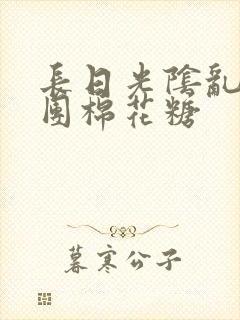 長日光陰亂
團棉花糖
暮寒公子